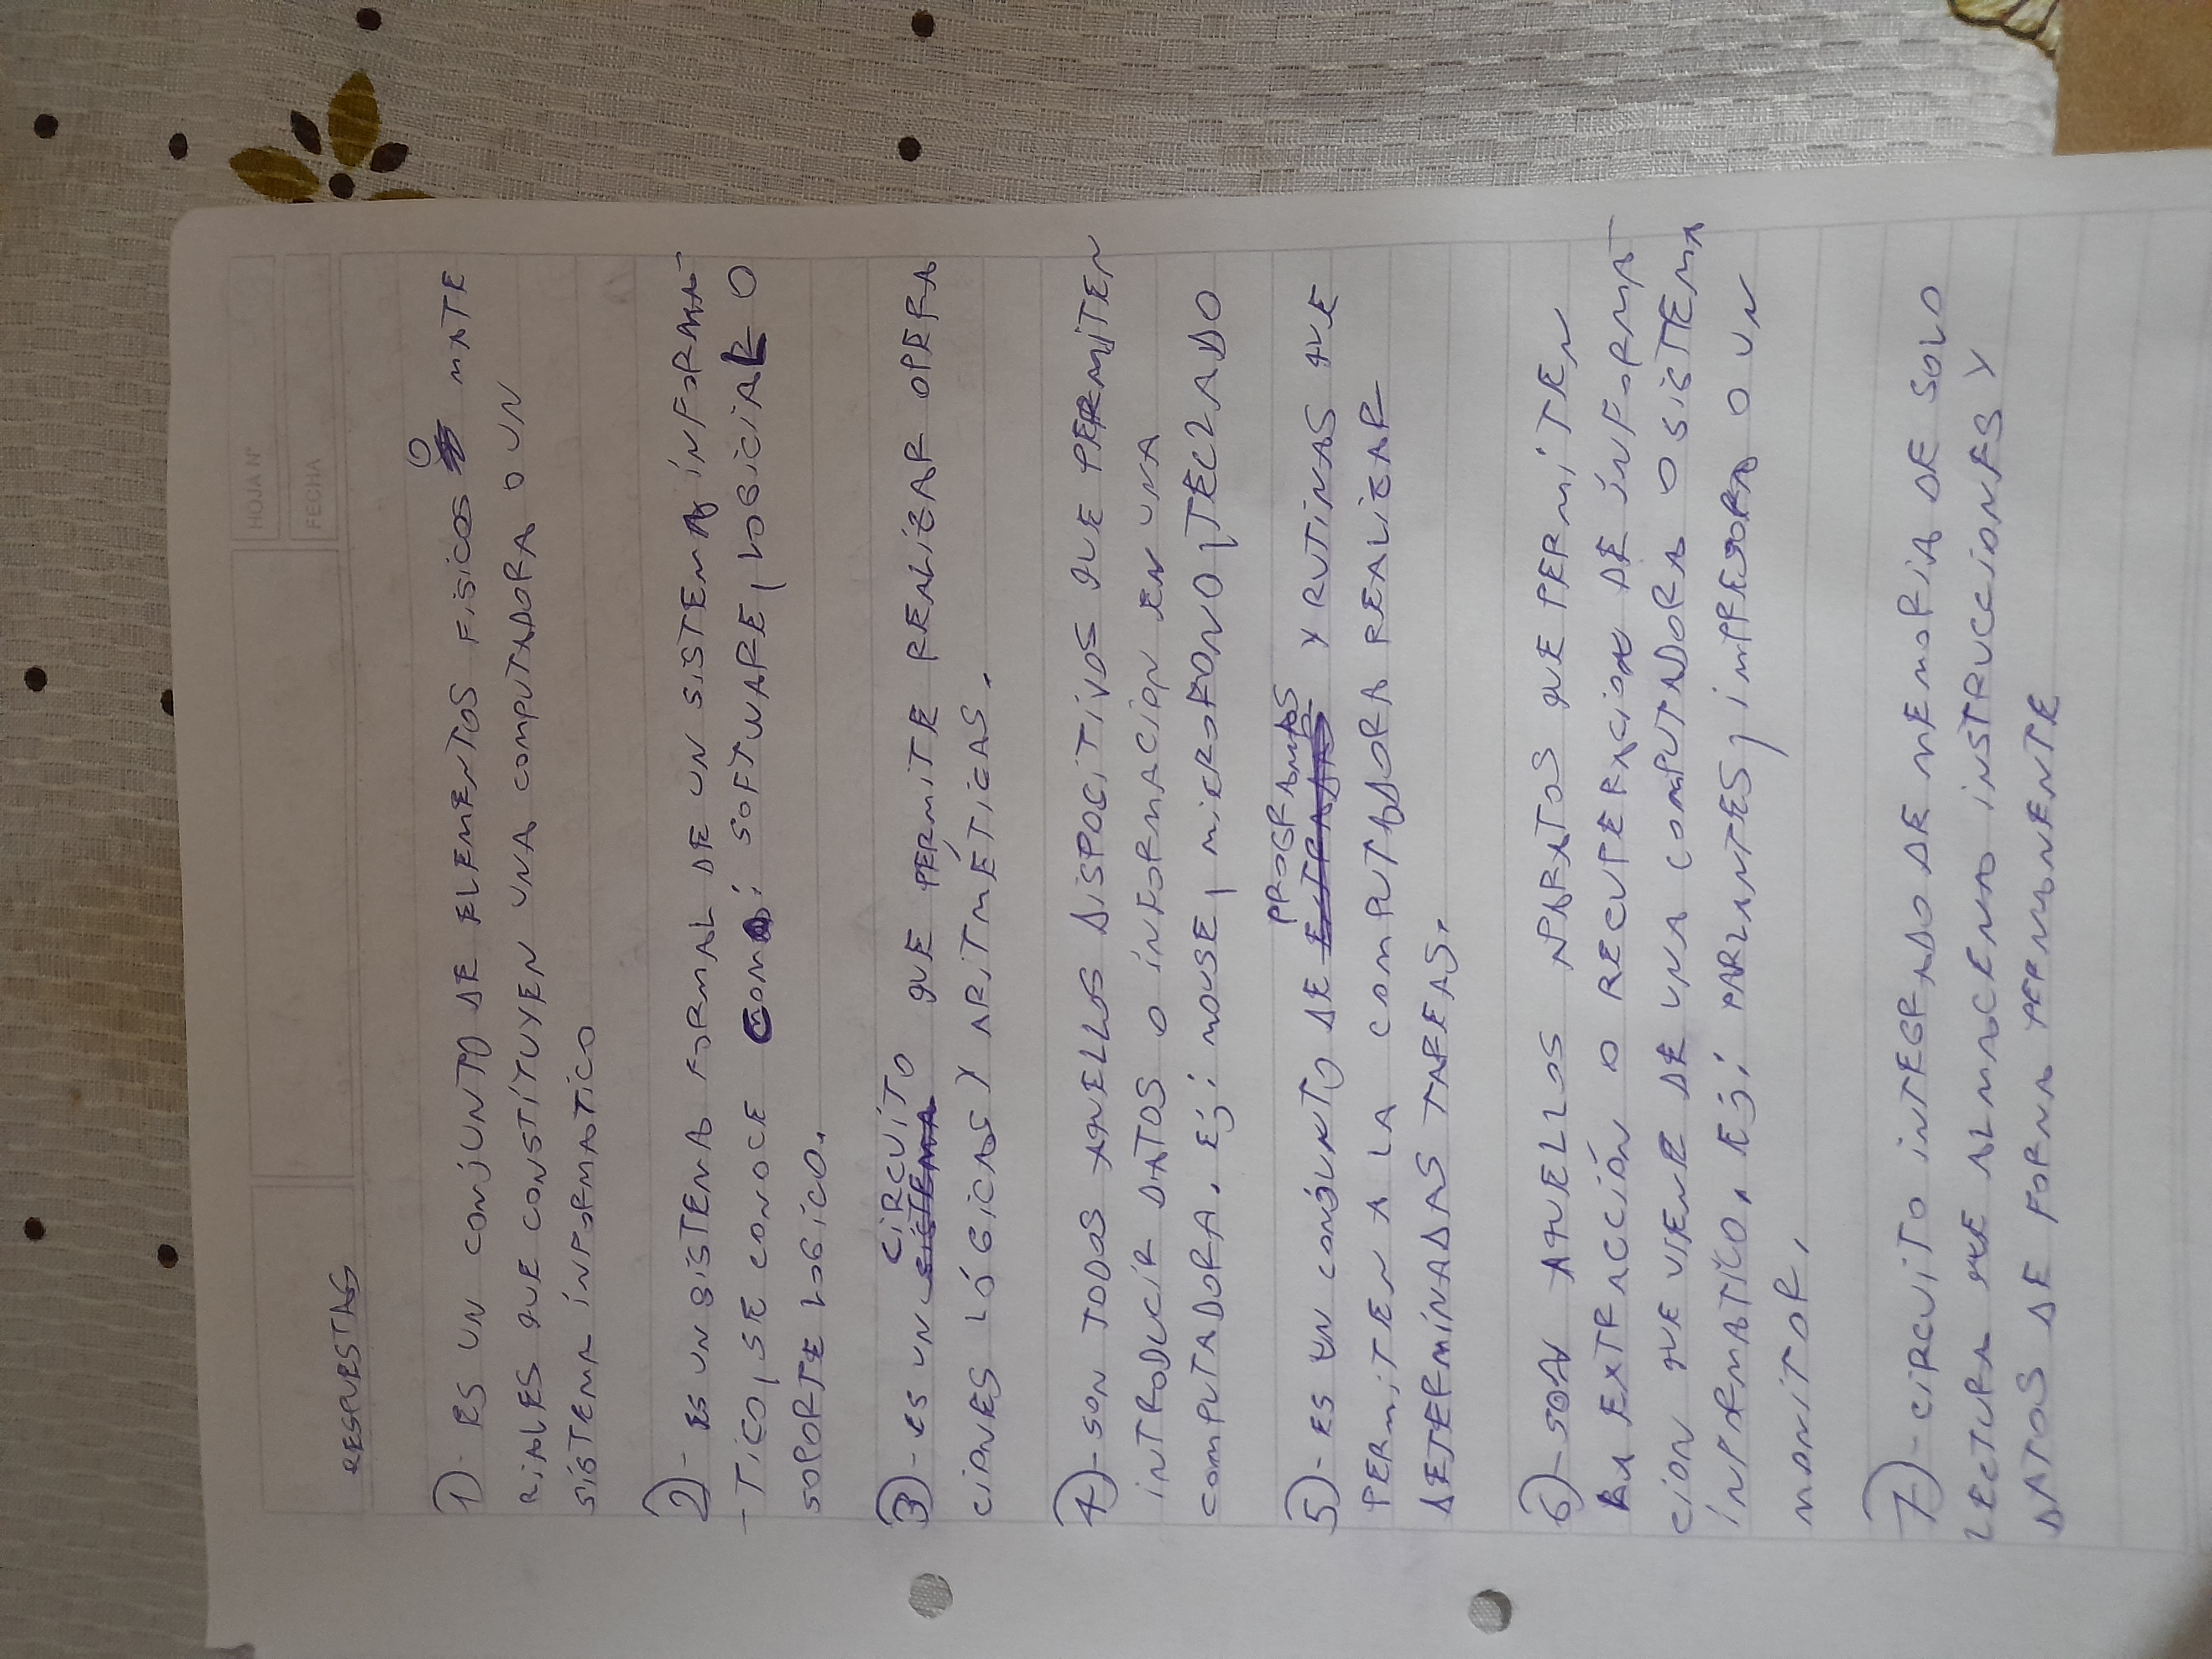 HOJA N°
FECHA
RESPUESTAS
1)- ES UN CONJUNTO DE ELEMENTOS FISICOS O MATE
RIALES QUE CONSTÍTUYEN UNA COMPUTADORA O UN
SISTEMA INFORMATICO
2)- ES UN SISTEMA FORMAL DE UN SISTEMA INFORMA-
-TICO, SE CONOCE COMO: SOFTWARE, LOGICIAL O
SOPORTE LOGICO.
3)- ES UN CIRCUITO QUE PERMITE REALIZAR OPERA
CIONES LÓGICAS Y ARITMÉTICAS.
4)- SON TODOS AQUELLOS DISPOCITIVOS QUE PERMITEN
INTRODUCIR DATOS O INFORMACION EN UNA
COMPUTADORA. Ej: MOUSE, MICROFONO, TECLADO
5)- ES UN CONJUNTO DE PROGRAMAS Y RUTINAS QUE
PERMITEN A LA COMPUTADORA REALIZAR
DETERMINADAS TAREAS.
6)- SON AQUELLOS APARATOS QUE PERMITEN
LA EXTRACCIÓN O RECUPERACION DE INFORMA-
CION QUE VIENE DE UNA COMPUTADORA O SISTEMA
INFORMATICO. Ej: PARLANTES, IMPRESORA O UN
MONITOR.
7)- CIRCUITO INTEGRADO DE MEMORIA DE SOLO
LECTURA QUE ALMACENA INSTRUCCIONES Y
DATOS DE FORMA PERMANENTE